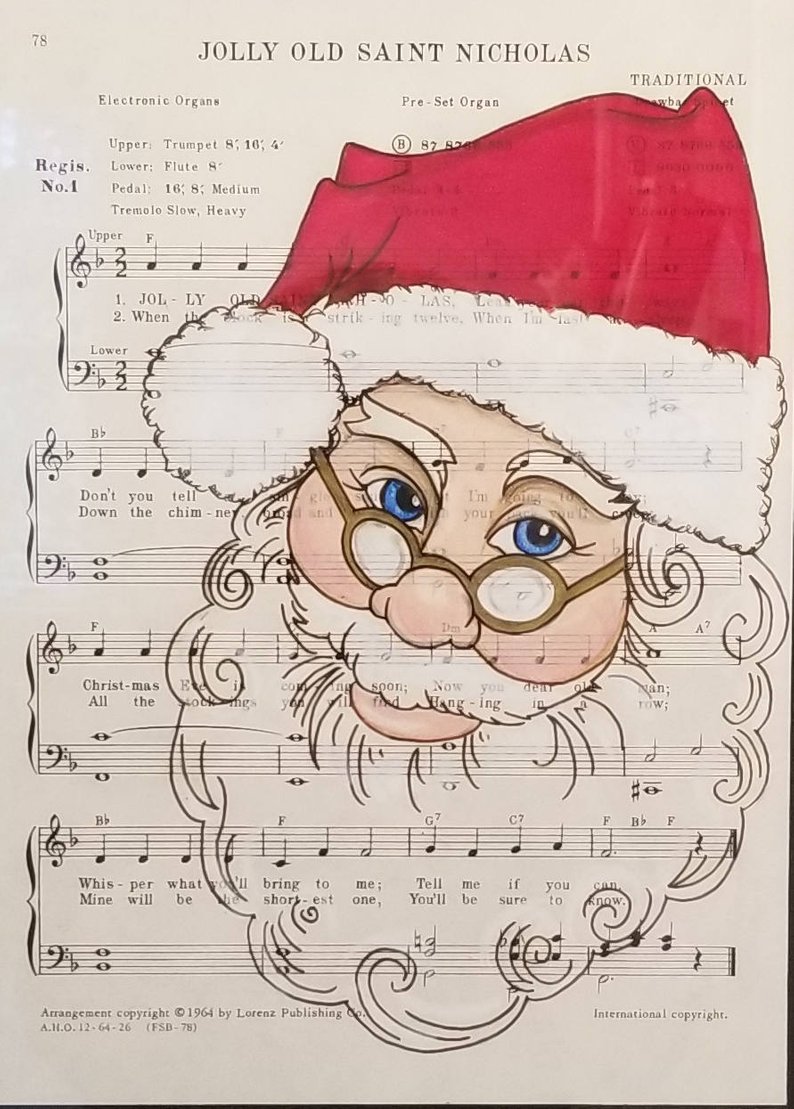 78
JOLLY OLD SAINT NICHOLAS
TRADITIONAL
Electronic Organs Pre-Set Organ
Upper: Trumpet 8', 16', 4' B 87 8
Regis. Lower: Flute 8'
No.1 Pedal: 16', 8', Medium
Tremolo Slow, Heavy
Upper F
1. JOL - LY OLD - O - LAS,
2. When the clock is strik - ing twelve, When I'm fast
Lower
B♭
Don't you tell I'm going to
Down the chim - ney broad and your pack you'll
F Dm A A7
Christ-mas Eve is com - ing soon; Now you dear old man;
All the stock - ings you will find Hang - ing in a row;
B♭ F G7 C7 F B♭ F
Whis - per what you'll bring to me; Tell me if you can.
Mine will be the short - est one, You'll be sure to know.
Arrangement copyright © 1964 by Lorenz Publishing Co. International copyright.
A.H.O. 12-64-26 (FSB-78)